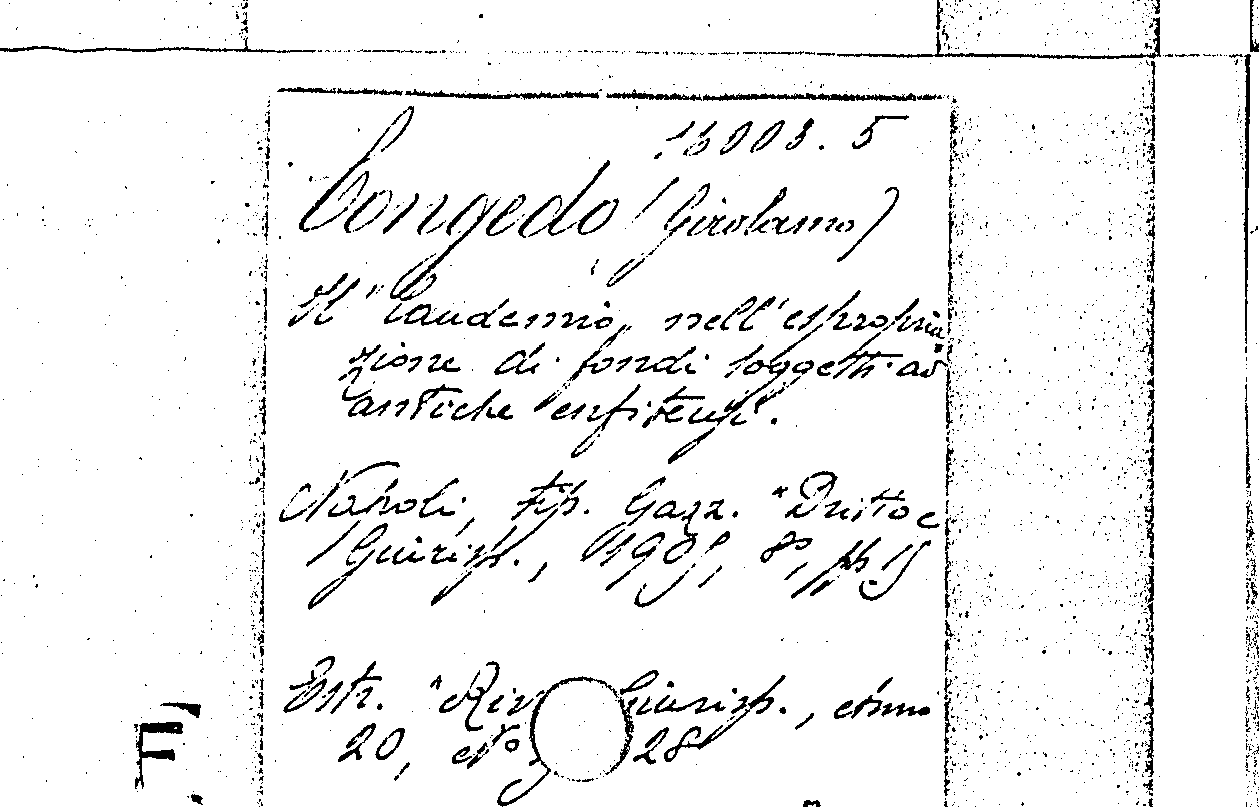 16003.5
Congedo (Girolamo)
Il "laudemio" nell'espropria
zione di fondi soggetti ad
antiche enfiteusi.
Napoli, tip. Gazz. "Diritto e
Giurisp., 1905, 8°, pp 15
Estr. "Riv Giurisp., Anno
20, N° 28
F